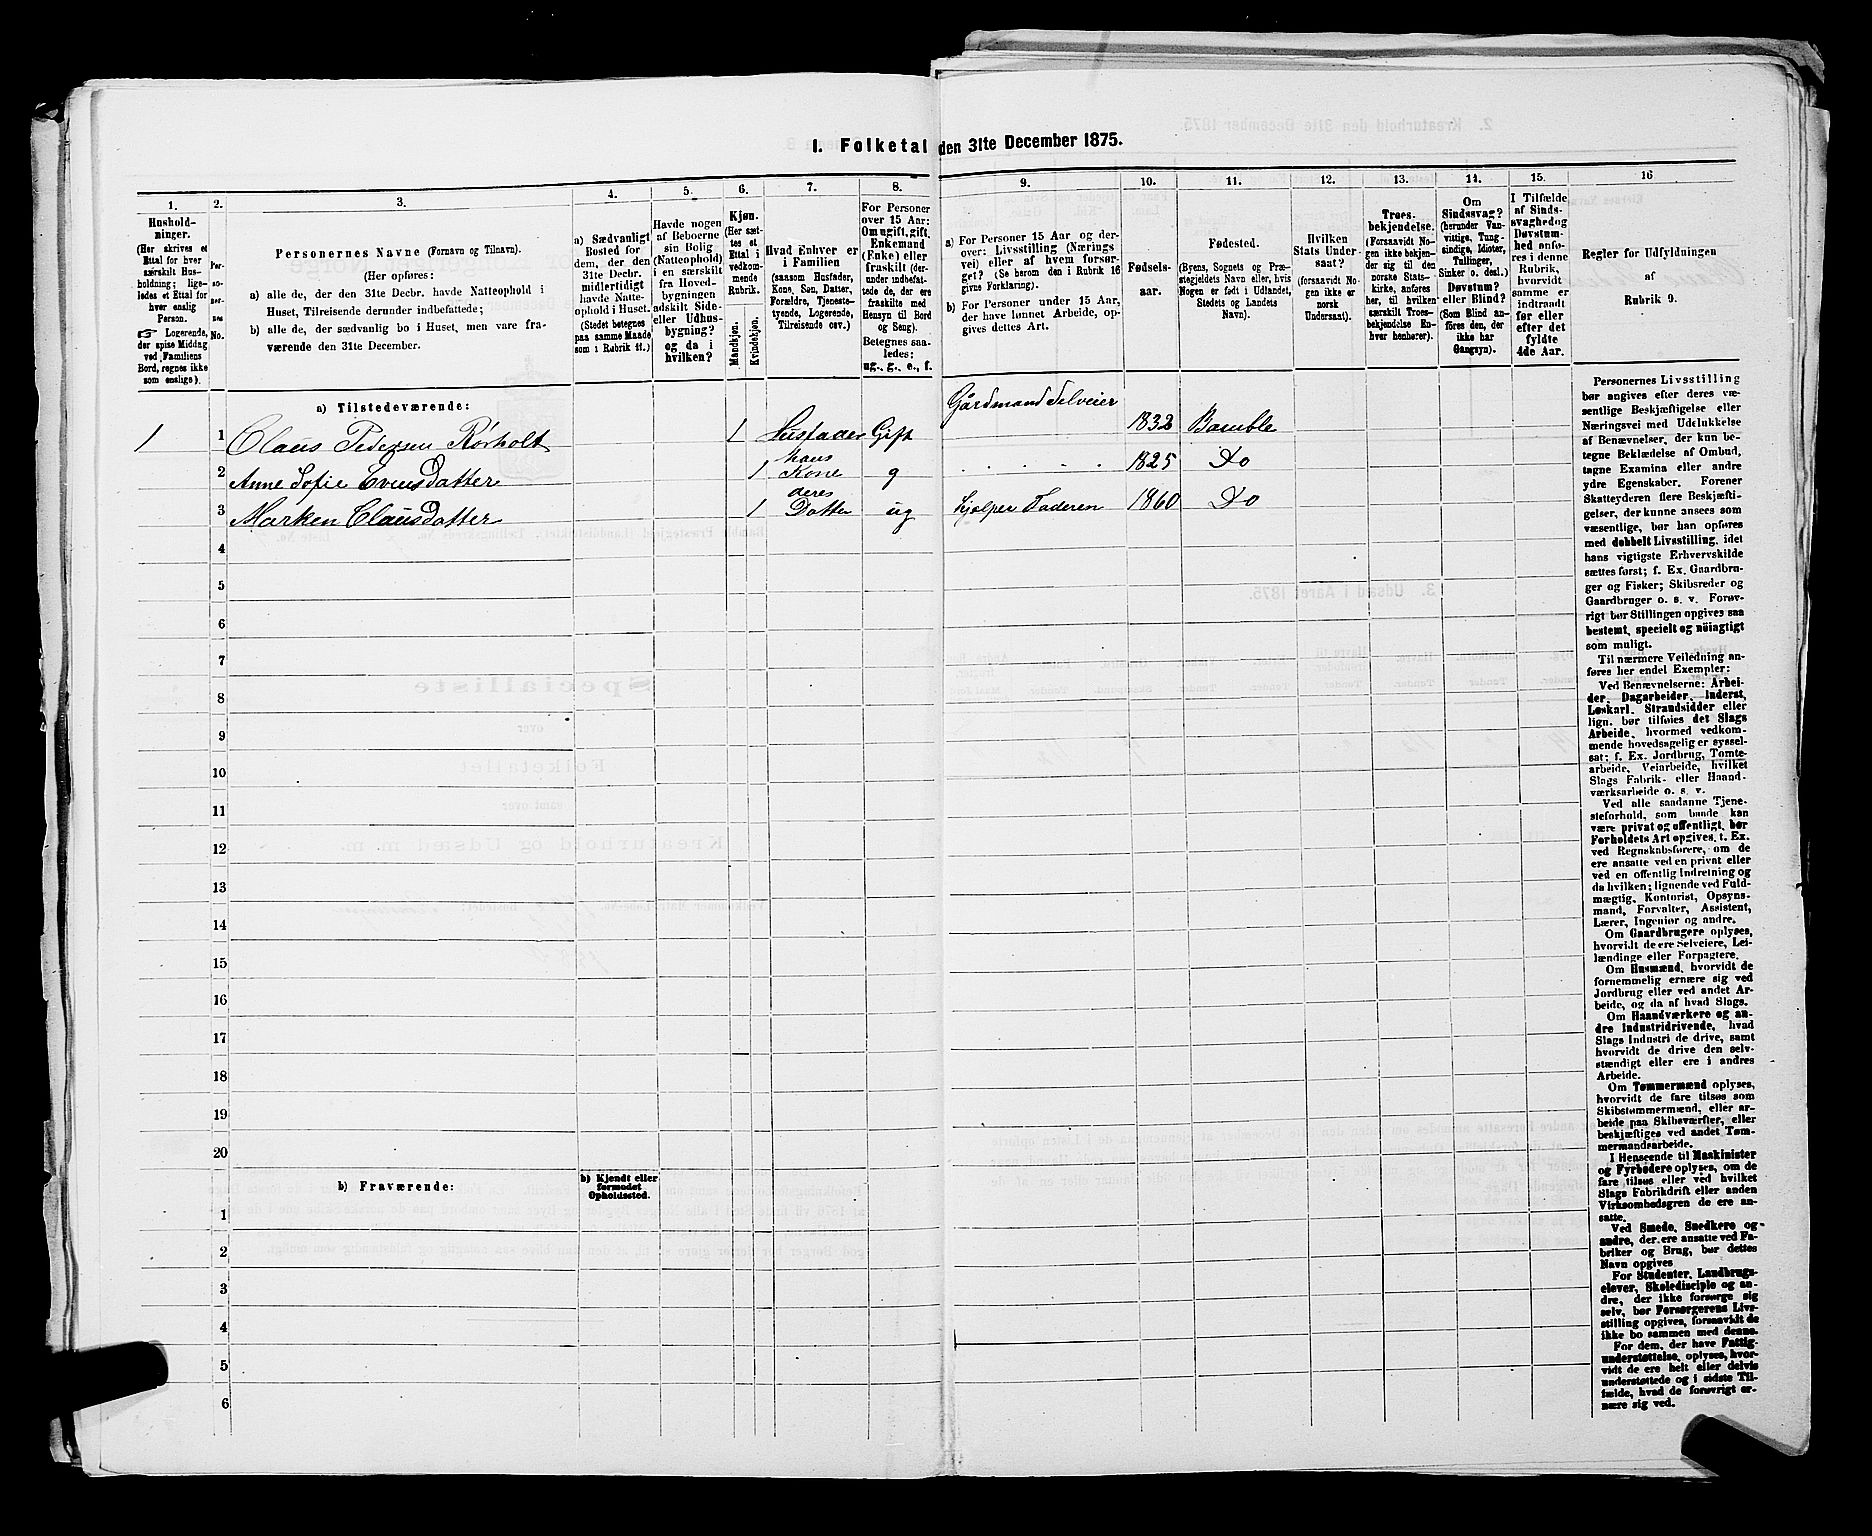 I. Folketal den 31te December 1875.
1.
2.
3.
4.
5.
6.
7.
8.
9.
10.
11.
12.
13.
14.
15.
16
Hushold-
ninger.
(Her skrives et
Ettal for hver
særskilt Hus-
holdning; lige-
ledes et Ettal for
hver enslig
Person.
☞ Logerende,
der spise Middag
ved Familiens
Bord, regnes ikke
som enslige).
Per-
so-
ner-
nes
No.
Personernes Navne (Fornavn og Tilnavn).
(Her opføres:
a) alle de, der den 31te Decbr. havde Natteophold i
Huset, Tilreisende derunder indbefattede;
b) alle de, der sædvanlig bo i Huset, men vare fra-
værende den 31te December.
a) Sædvanligt
Bosted for
dem, der den
31te Decbr.
midlertidigt
havde Natte-
ophold i Huset.
(Stedet betegnes
paa samme Maade
som i Rubrik 11.)
Havde nogen
af Beboerne
sin Bolig
(Natteophold)
i en særskilt
fra Hoved-
bygningen
adskilt Side-
eller Udhus-
bygning?
og da i
hvilken?
Kjøn.
(Her sæt-
tes et
Ettal i
vedkom-
mende
Rubrik.
Mandkjøn.
Kvindekjøn.
Hvad Enhver er
i Familien
(saasom Husfader,
Kone, Søn, Datter,
Forældre, Tjeneste-
tyende, Logerende,
Tilreisende osv.)
For Personer
over 15 Aar:
Om ugift, gift,
Enkemand
(Enke) eller
fraskilt (der-
under indbefat-
tede de, der ere
fraskilte med
Hensyn til Bord
og Seng).
Betegnes saa-
ledes:
ug., g., e., f.
a) For Personer 15 Aar og der-
over: Livsstilling (Nærings
vei) eller af hvem forsør-
get? (Se herom den i Rubrik 16
givne Forklaring).
b) For Personer under 15 Aar,
der have lønnet Arbeide, op-
gives dettes Art.
Fødsels-
aar.
Fødested.
(Byens, Sognets og Præ-
stegjeldets Navn eller, hvis
Nogen er født i Udlandet,
Stedets og Landets
Navn).
Hvilken
Stats Under-
saat?
(forsaavidt No-
gen ikke er
norsk
Undersaat).
Troes-
bekjendelse.
(Forsaavidt No-
gen ikke bekjen-
der sig til den
norske Stats-
kirke, anføres
her, til hvilken
særskilt Troes-
bekjendelse En-
hver henhører).
Om
Sindssvag?
(herunder Van-
vittige, Tung-
sindige, Idioter,
Tullinger,
Sinker o. desl.)
Døvstum?
eller Blind?
(Som Blind an-
føres den, der
ikke har
Gangsyn).
I Tilfælde
af Sinds-
svaghed og
Døvstum-
hed anfø-
res i denne
Rubrik,
hvorvidt
samme er
indtraadt
før eller
efter det
fyldte
4de Aar.
Regler for Udfyldningen
af
Rubrik 9.
a) Tilstedeværende:
Gårdmand Selveier
1 1 Claus Pedersen Rørholt 1 Husfader Gift 1832 Bamble
hans
2 Anne Sofie Evensdatter 1 Kone g . . . . . 1825 Do
deres
3 Marken Clausdatter 1 Datter ug hjelper Faderen 1860 Do
4
5
6
7
8
9
10
11
12
13
14
15
16
17
18
19
20
b) Fraværende:
b) Kjendt eller
formodet
Opholdssted.
1
2
3
4
5
6
Personernes Livsstilling
bør angives efter deres væ-
sentlige Beskjæftigelse eller
Næringsvei med Udelukkelse
af Benævnelser, der kun be-
tegne Beklædelse af Ombud,
tagne Examina eller andre
ydre Egenskaber. Forener
Skatteyderen flere Beskjæfti-
gelser, der kunne ansees som
væsentlige, bør han opføres
med dobbelt Livsstilling, idet
hans vigtigste Erhvervskilde
sættes først; f. Ex. Gaardbru-
ger og Fisker; Skibsreder og
Gaardbruger o. s. v. Forøv-
rigt bør Stillingen opgives saa
bestemt, specielt og nöiagtigt
som muligt.
Til nærmere Veiledning an-
føres her endel Exempler:
Ved Benævnelserne: Arbei-
der, Dagarbeider, Inderst,
Løskarl, Strandsidder eller
lign. bør tilføies det Slags
Arbeide, hvormed vedkom-
mende hovedsagelig er syssel-
sat; f. Ex. Jordbrug, Tomte-
arbeide, Veiarbeide, hvilket
Slags Fabrik- eller Haand-
værksarbeide o. s. v.
Ved alle saadanne Tjene-
steforhold, som baade kan
være privat og offentligt, bør
Forholdets Art opgives, t. Ex.
ved Regnskabsførere, om de
ere ansatte ved en privat eller
ved en offentlig Indretning og
da hvilken; lignende ved Fuld-
mægtig, Kontorist, Opsyns-
mand, Forvalter, Assistent,
Lærer, Ingeniør og andre.
Om Gaardbrugere oplyses,
hvorvidt de ere Selveiere, Lei-
lændinge eller Forpagtere.
Om Husmænd, hvorvidt de
fornemmelig ernære sig ved
Jordbrug eller ved andet Ar-
beide, og da af hvad Slags.
Om Haandværkere og an-
dre Industridrivende, hvad
Slags Industri de drive, samt
hvorvidt de drive den selv-
stændigt eller ere i andres
Arbeide.
Om Tømmermænd oplyses,
hvorvidt de fare tilsøs som
Skibstømmermænd, eller ar-
beide paa Skibsværfter, eller
beskjæftiges ved andet Tøm-
mermandsarbeide.
I Henseende til Maskinister
og Fyrbødere oplyses, om de
fare tilsøs eller ved hvilket
Slags Fabrikdrift eller anden
Virksomhedsgren de ere an-
satte.
Ved Smede, Snedkere og
andre, der ere ansatte ved Fa-
briker og Brug, bør dettes
Navn opgives
For Studenter, Landbrugs-
elever, Skoledisciple og an-
dre, der ikke forsørge sig
selv, bør Forsørgerens Livs-
stilling opgives, forsaavidt de
ikke bo sammen med denne.
For dem, der have Fattig-
understøttelse, oplyses, hvor-
vidt de ere helt eller delvis
understøttede og i sidste Til-
fælde, hvad de forøvrigt er-
nære sig ved.